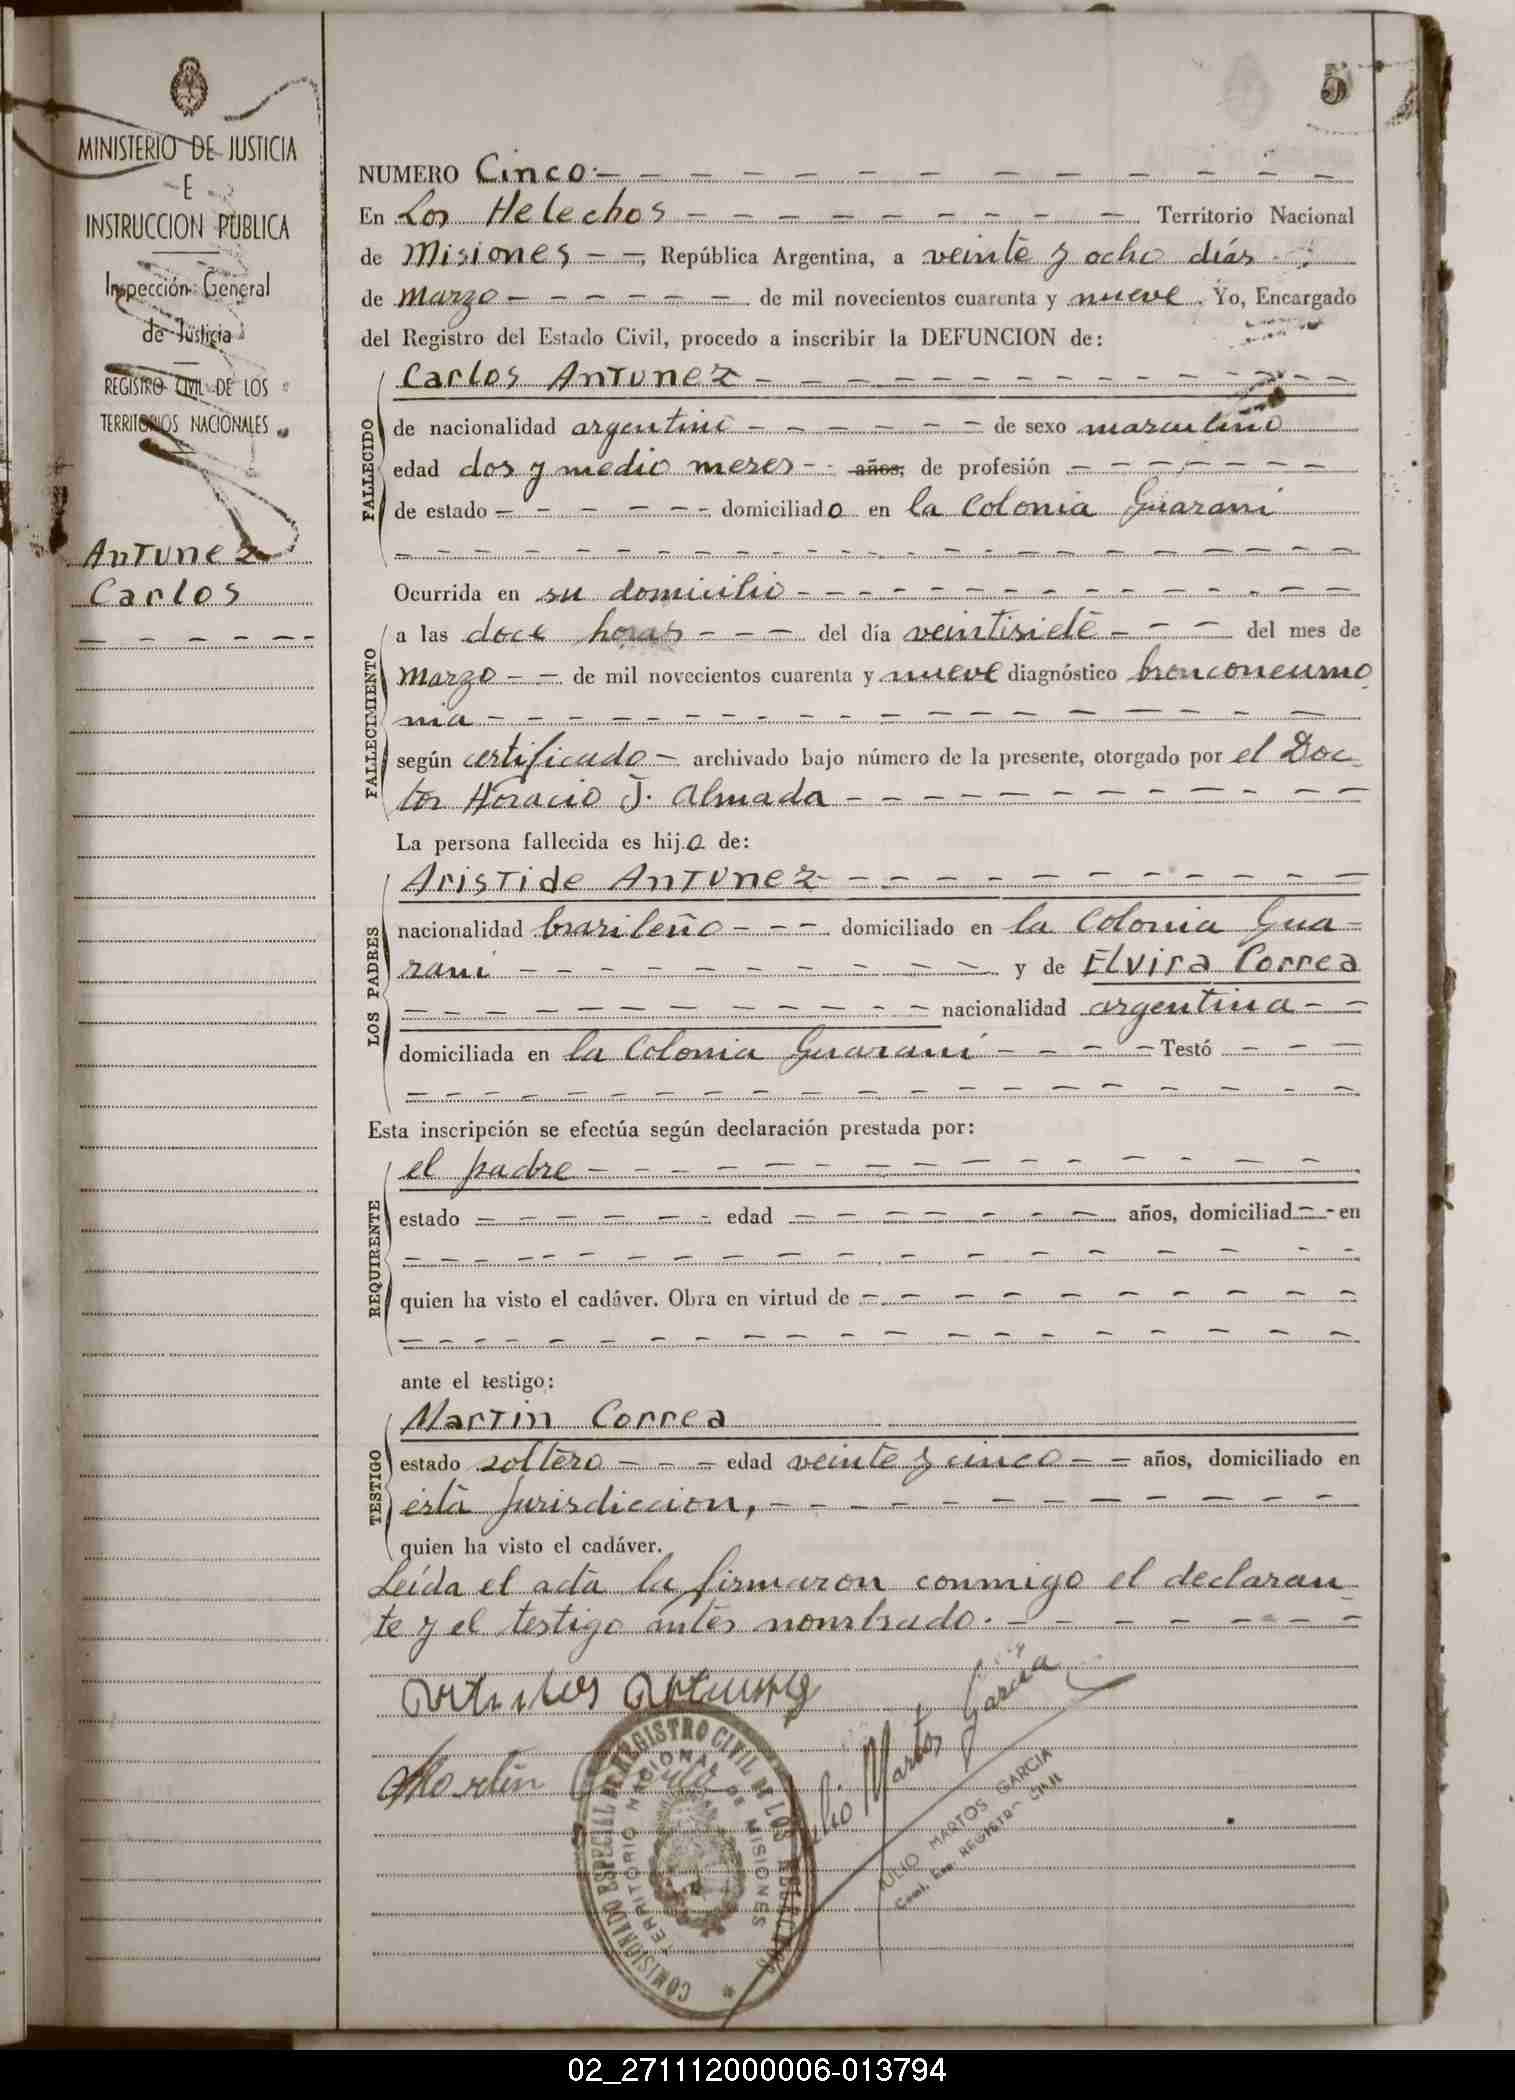 5
MINISTERIO DE JUSTICIA
E
INSTRUCCION PUBLICA
Inspección General
de Justicia
REGISTRO CIVIL DE LOS
TERRITORIOS NACIONALES
Antunez
Carlos
NUMERO Cinco.-
En Los Helechos - Territorio Nacional
de Misiones - -, República Argentina, a veinte y ocho días
de Marzo - de mil novecientos cuarenta y nueve. Yo, Encargado
del Registro del Estado Civil, procedo a inscribir la DEFUNCION de:
FALLECIDO
Carlos Antunez -
de nacionalidad argentino - de sexo masculino
edad dos y medio meses - - años, de profesión -
de estado - domiciliado en la Colonia Guarani
Ocurrida en su domicilio -
FALLECIMIENTO
a las doce horas - - - del día veintisiete - - - del mes de
Marzo - - de mil novecientos cuarenta y nueve diagnóstico bronconeumo
nia -
según certificado - archivado bajo número de la presente, otorgado por el Doc-
tor Horacio J. Almada -
La persona fallecida es hijo de:
LOS PADRES
Aristide Antunez -
nacionalidad brasileño - - - domiciliado en la Colonia Gua-
rani - y de Elvira Correa
- nacionalidad argentina - -
domiciliada en la Colonia Guarani - Testó - - -
Esta inscripción se efectúa según declaración prestada por:
REQUIRENTE
el padre -
estado - edad - años, domiciliad - - en
quien ha visto el cadáver. Obra en virtud de -
ante el testigo:
TESTIGO
Martin Correa
estado soltero - - - edad veinte y cinco - - años, domiciliado en
esta jurisdiccion, -
quien ha visto el cadáver.
Leída el acta la firmaron conmigo el declaran-
te y el testigo antes nombrado. -
Martin
Julio Martos Garcia
JULIO MARTOS GARCIA
REGISTRO CIVIL
COMISIONADO ESPECIAL DE REGISTRO CIVIL DE LOS
TERRITORIO NACIONAL DE MISIONES
02_271112000006-013794